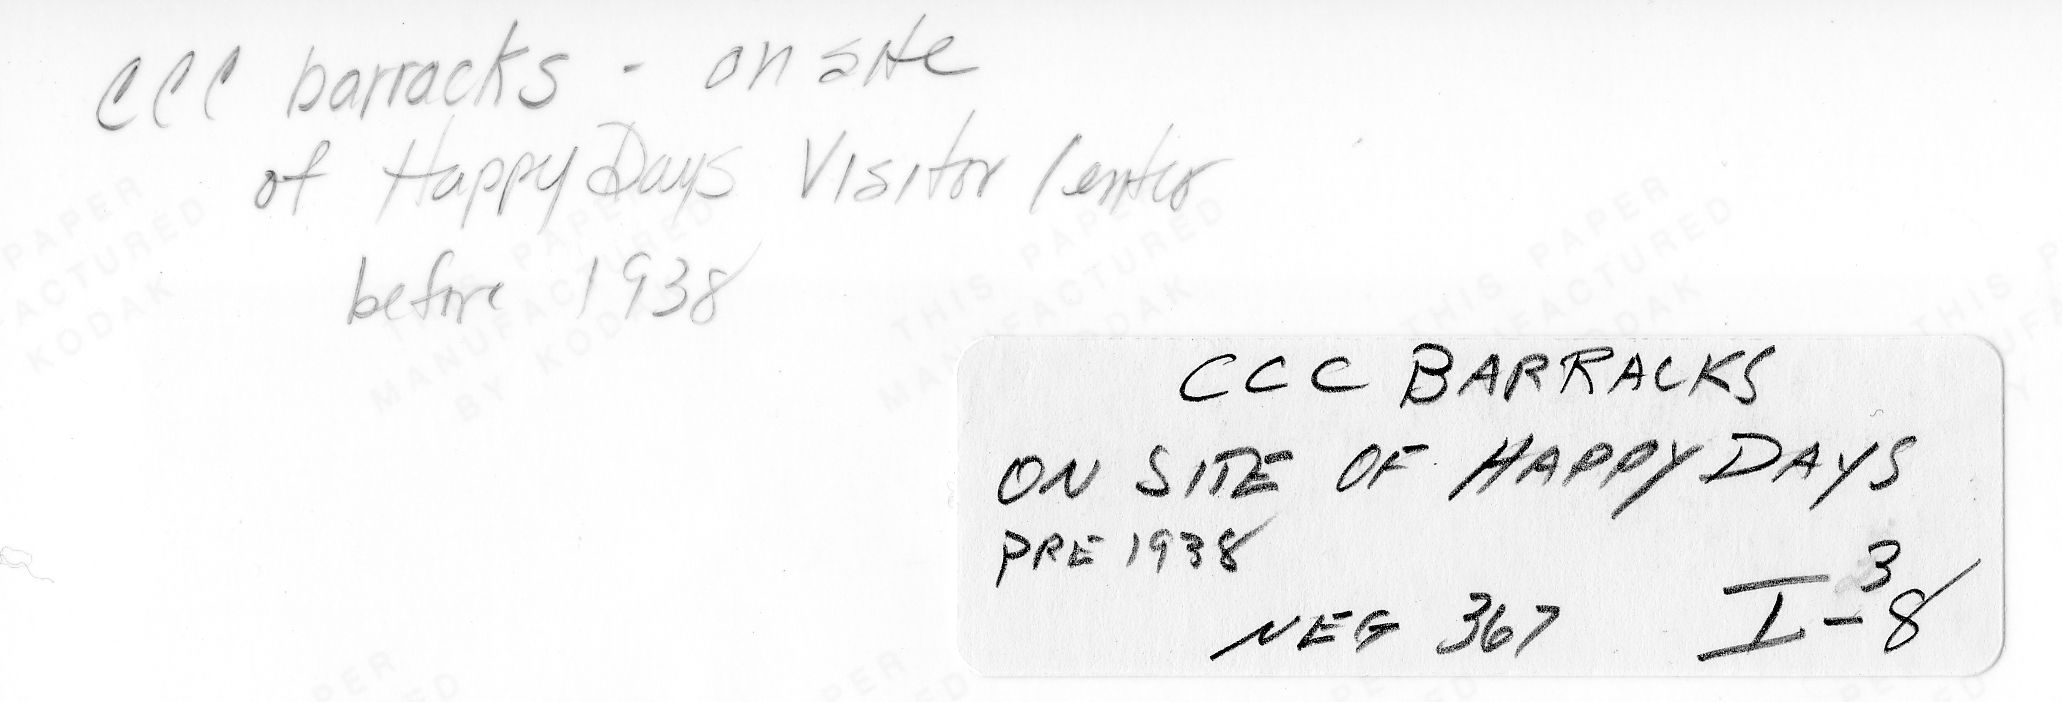 CCC barracks - on site
of Happy Days Visitor Center
before 1938
CCC BARRACKS
ON SITE OF HAPPY DAYS
PRE 1938
NEG 367 I-38
THIS PAPER
MANUFACTURED
BY KODAK